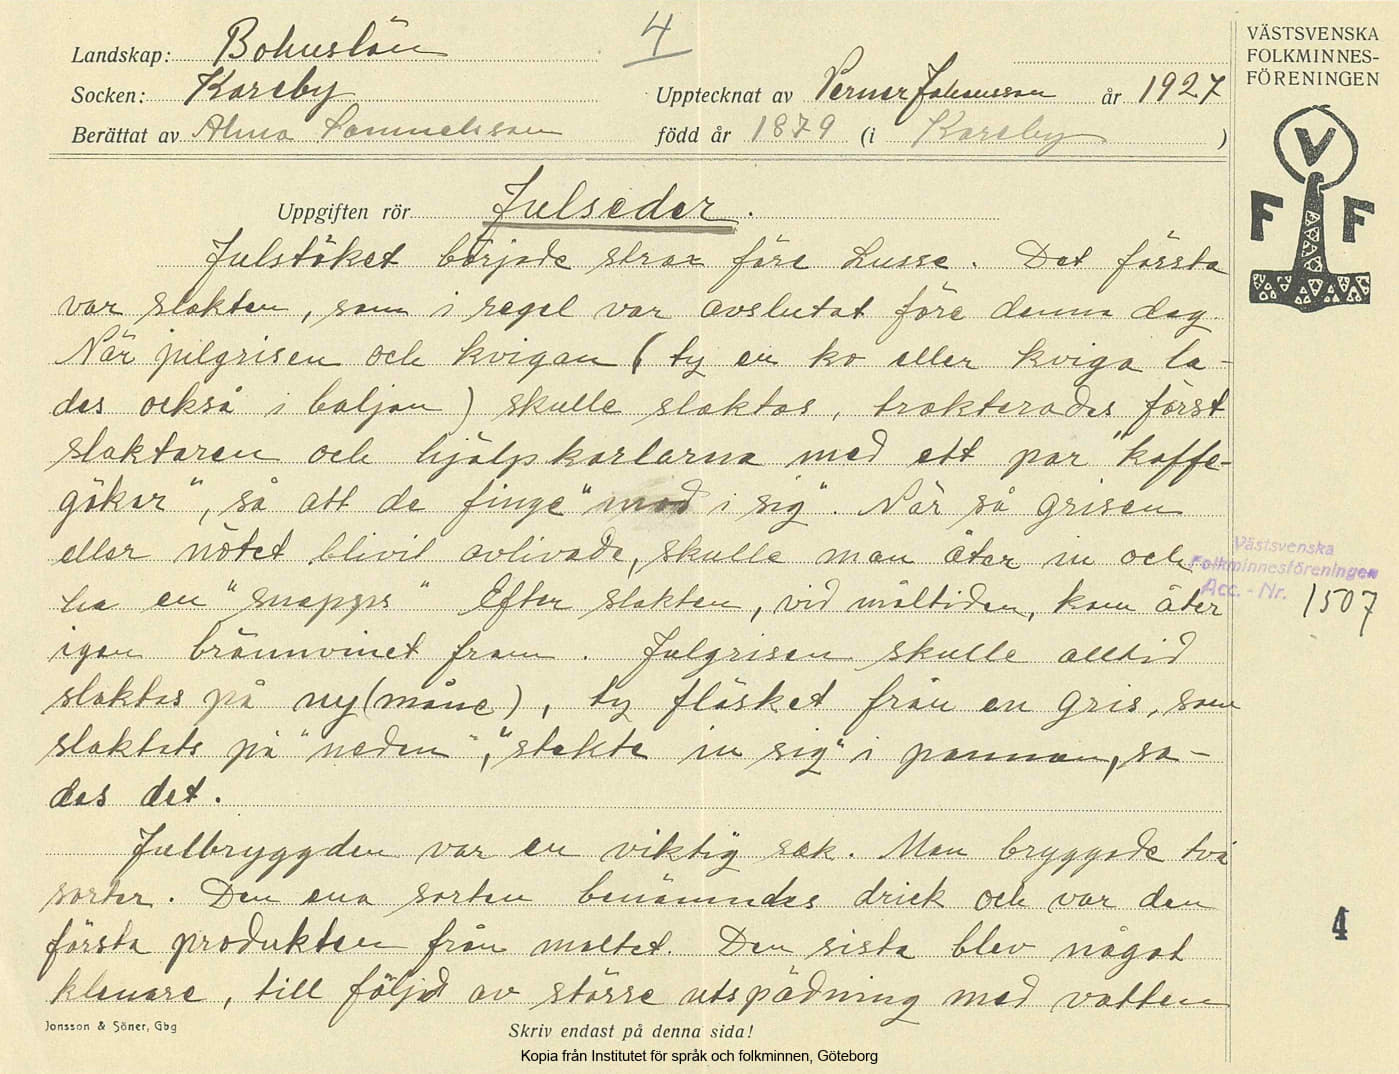 4
Landskap: Bohuslän
Socken: Kareby
Upptecknat av Verner Johansson år 1927
Berättat av Alma Samuelsson född år 1879 (i Kareby )
VÄSTSVENSKA
FOLKMINNES-
FÖRENINGEN
V
F F
Uppgiften rör Julseder.
Julstöket började strax före Lusse. Det första
var slakten, som i regel var avslutat före denna dag.
När julgrisen och kvigan (ty en ko eller kviga la-
des också i baljan) skulle slaktas, trakterades först
slaktaren och hjälpkarlarna med ett par "kaffe-
gökar", så att de finge "mod i sig". När så grisen
eller nötet blivit avlivade, skulle man åter in och
ha en "snapps" Efter slakten, vid måltiden, kom åter
igen brännvinet fram. Julgrisen skulle alltid
slaktas på ny(måne), ty fläsket från en gris, som
slaktats på "neden", "stekte in sig" i pannan, sa-
des det.
Julbryggden var en viktig sak. Man bryggade två
sorter. Den ena sorten benämndes drick och var den
första produkten från maltet. Den sista blev något
klenare, till följd av större utspädning med vatten
Västsvenska
Folkminnesföreningen
Acc. - Nr. 1507
4
Jonsson & Söner, Gbg
Skriv endast på denna sida!
Kopia från Institutet för språk och folkminnen, Göteborg